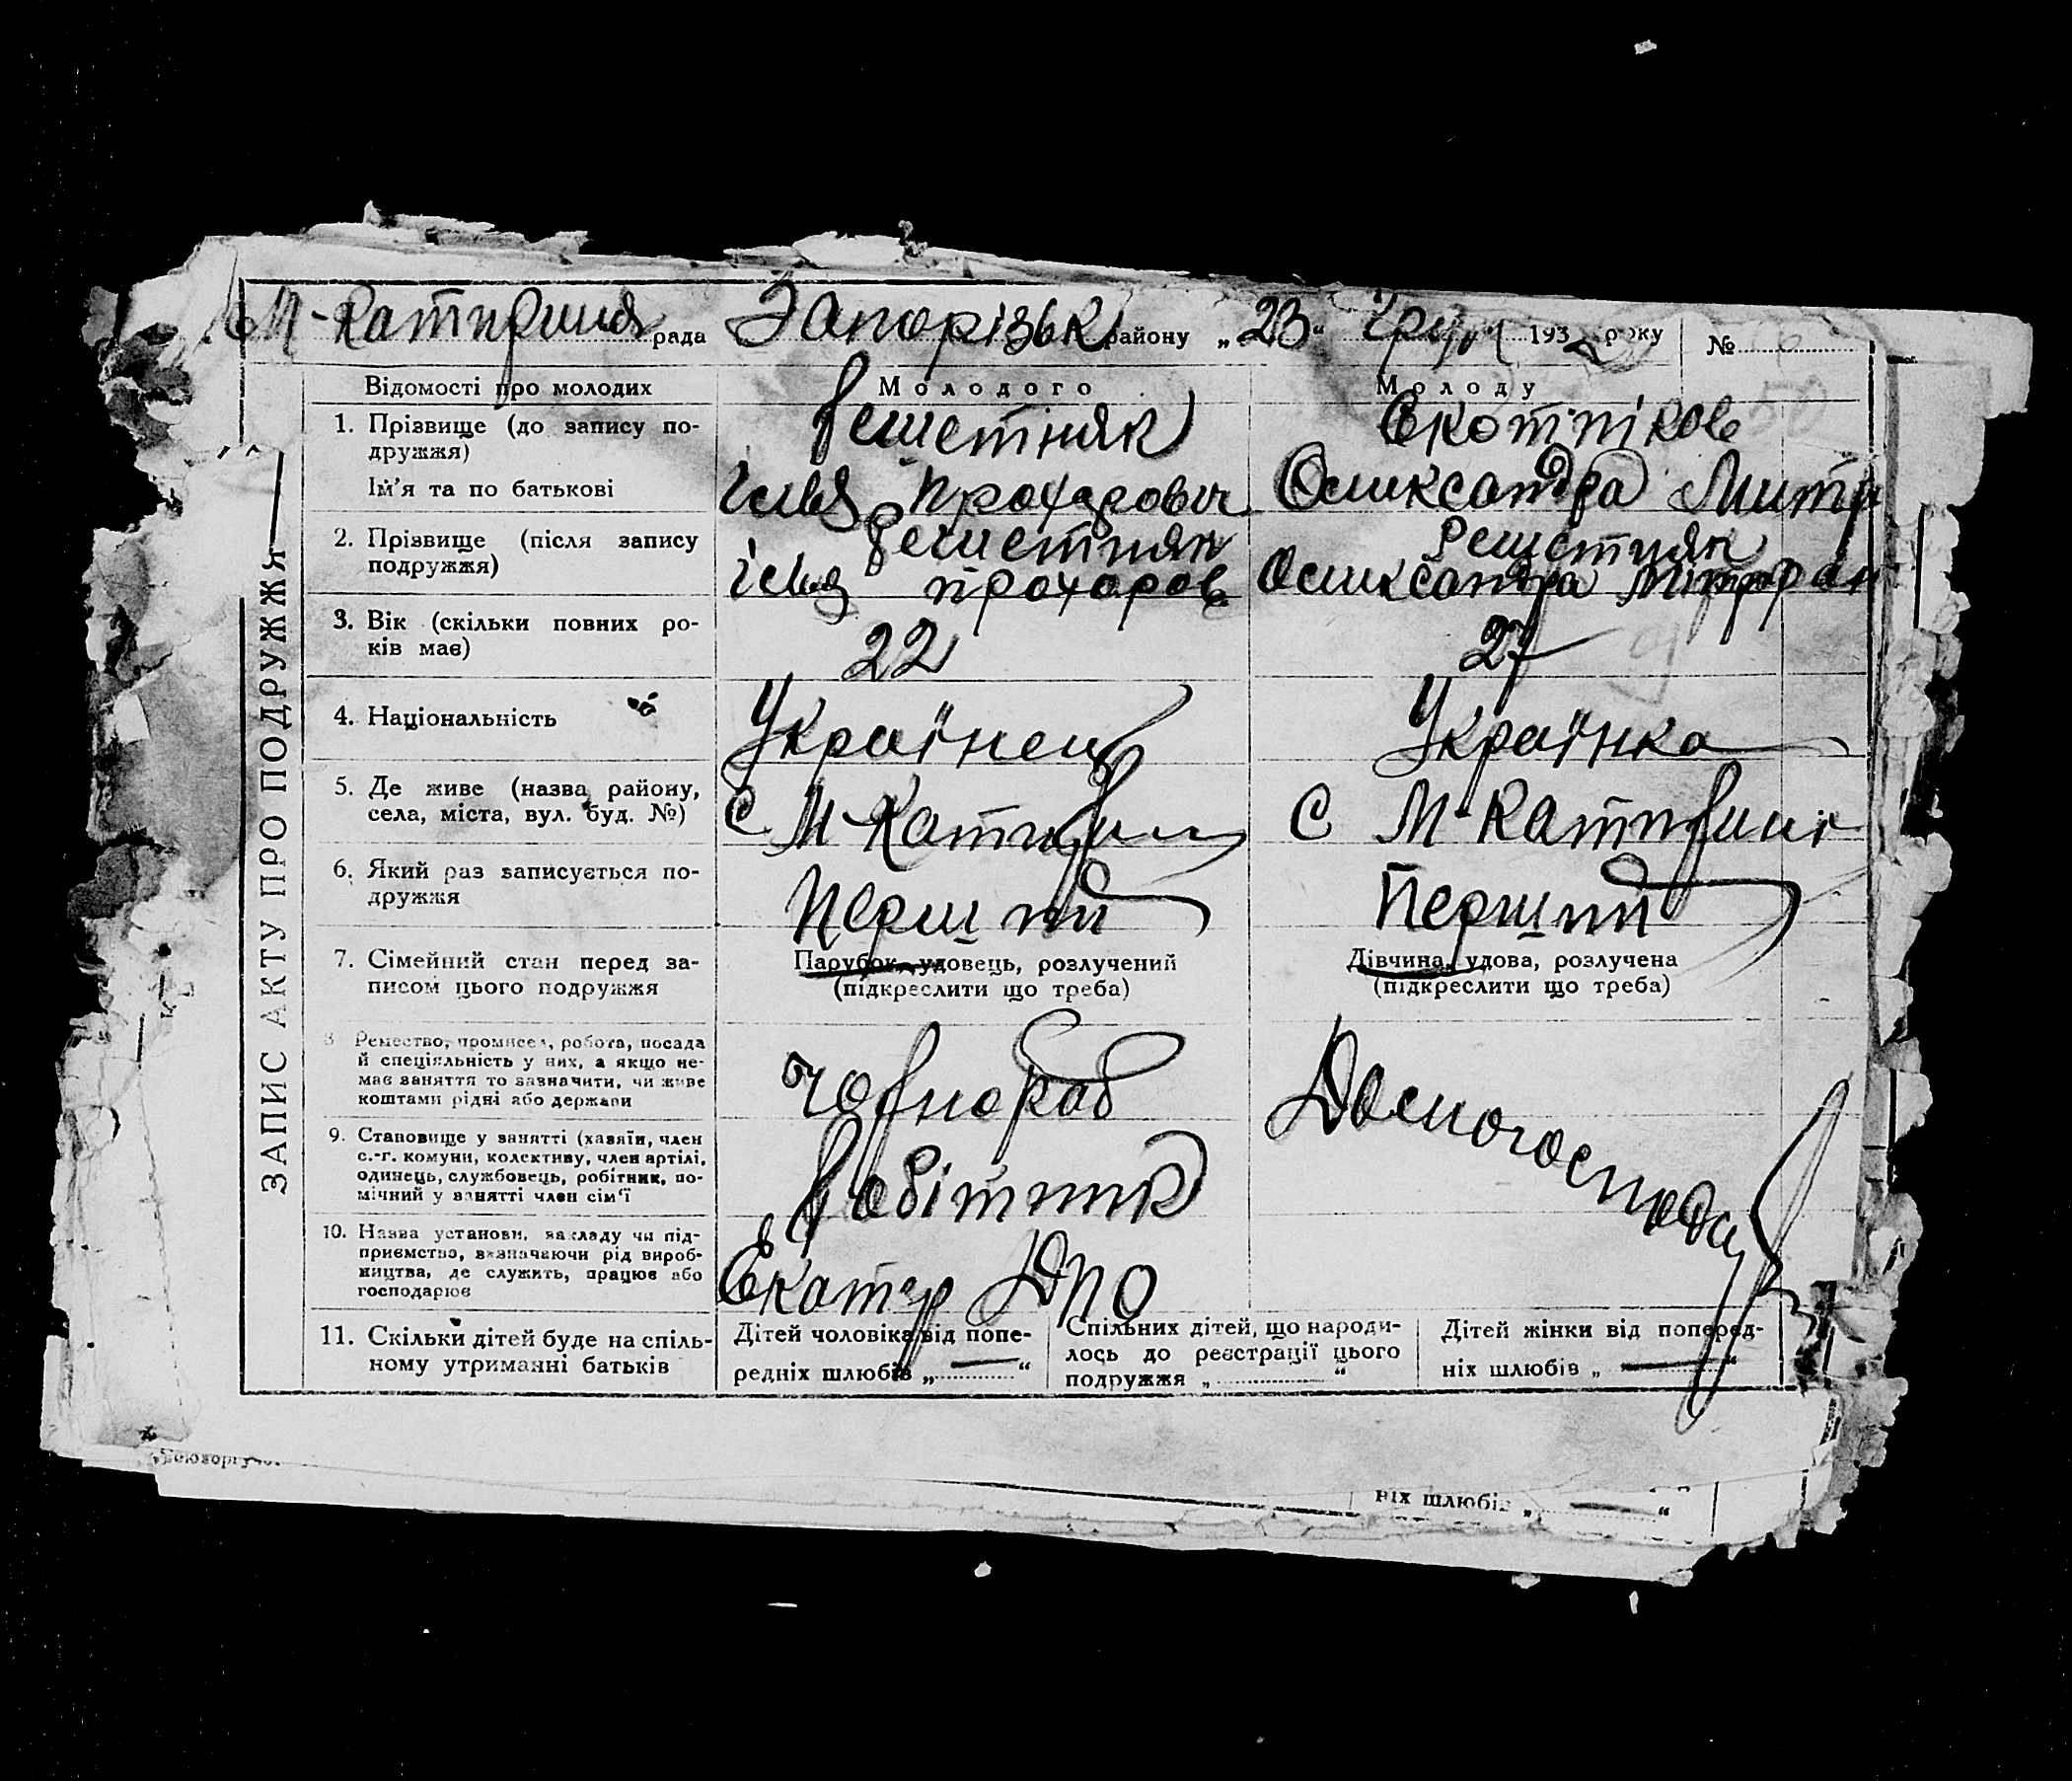 М-Катирин рада Запорізьк району „23“ Груд 193 року №
Відомості про молодих Молодого Молоду
1. Прізвище (до запису по-
дружжя)
Решетняк Скотнікова
Ім'я та по батькові
Ілья Прохорович Олександра Митр
2. Прізвище (після запису
подружжя)
Решетняк Решетняк
Ілья Прохоров Олександра Митрофан
3. Вік (скільки повних ро-
ків має)
22 27
4. Національність Українець Українка
5. Де живе (назва району,
села, міста, вул. буд. №)
С М-Катирин С М-Катирині
6. Який раз записується по-
дружжя
Перший Перший
7. Сімейний стан перед за-
писом цього подружжя
Парубок, удовець, розлучений
(підкреслити що треба)
Дівчина, удова, розлучена
(підкреслити що треба)
8 Ремество, промисел, робота, посада
й спеціяльність у них, а якщо не-
має заняття то зазначити, чи живе
коштами рідні або держави
Чорнороб Домогоспода
9. Становище у занятті (хазяїн, член
с.-г. комуни, колективу, член артілі,
одинець, службовець, робітник, по-
мічний у занятті член сім'ї
Робітник
10. Назва установи, закладу чи під-
приємства, визначаючи рід вироб-
ництва, де служить, працює або
господарює
Екатер ДПО
11. Скільки дітей буде на спіль-
ному утриманні батьків
Дітей чоловіка від попе-
редніх шлюбів „ — “
Спільних дітей, що народи-
лось до реєстрації цього
подружжя „ “
Дітей жінки від поперед-
ніх шлюбів „ — “
ЗАПИС АКТУ ПРО ПОДРУЖЖЯ
ніх шлюбів „ — “